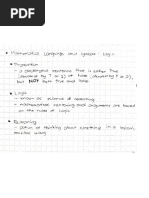 Mathematical Language and System : Logic
Proposition
- a declarative sentence that is either True
(denoted by T or 1) or False (denoted by F or 0),
but NOT both True and False
Logic
- known as science of reasoning
- mathematical reasoning and arguments are based
on the rules of logic
Reasoning
- action of thinking about something in a logical,
sensible way